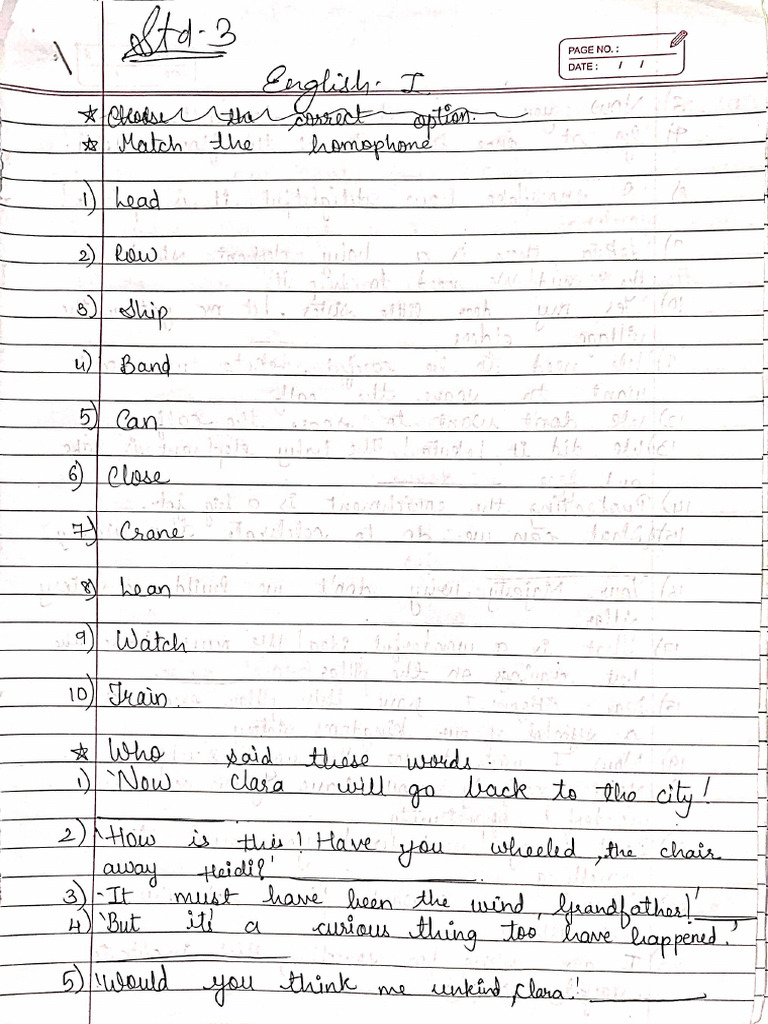 Std-3
PAGE NO.:
DATE: / /
English-I
* Choose the correct option.
* Match the homophone
1) Lead
2) Row
3) Ship
4) Band
5) Can
6) Close
7) Crane
8) Lean
9) Watch
10) Train
* Who said these words.
1) 'Now Clara will go back to the city!
2) 'How is this! Have you wheeled, the chair
away Heidi?'
3) -It must have been the wind, Grandfather!'
4) 'But it's a curious thing too have happened.'
5) 'Would you think me unkind, Clara!'